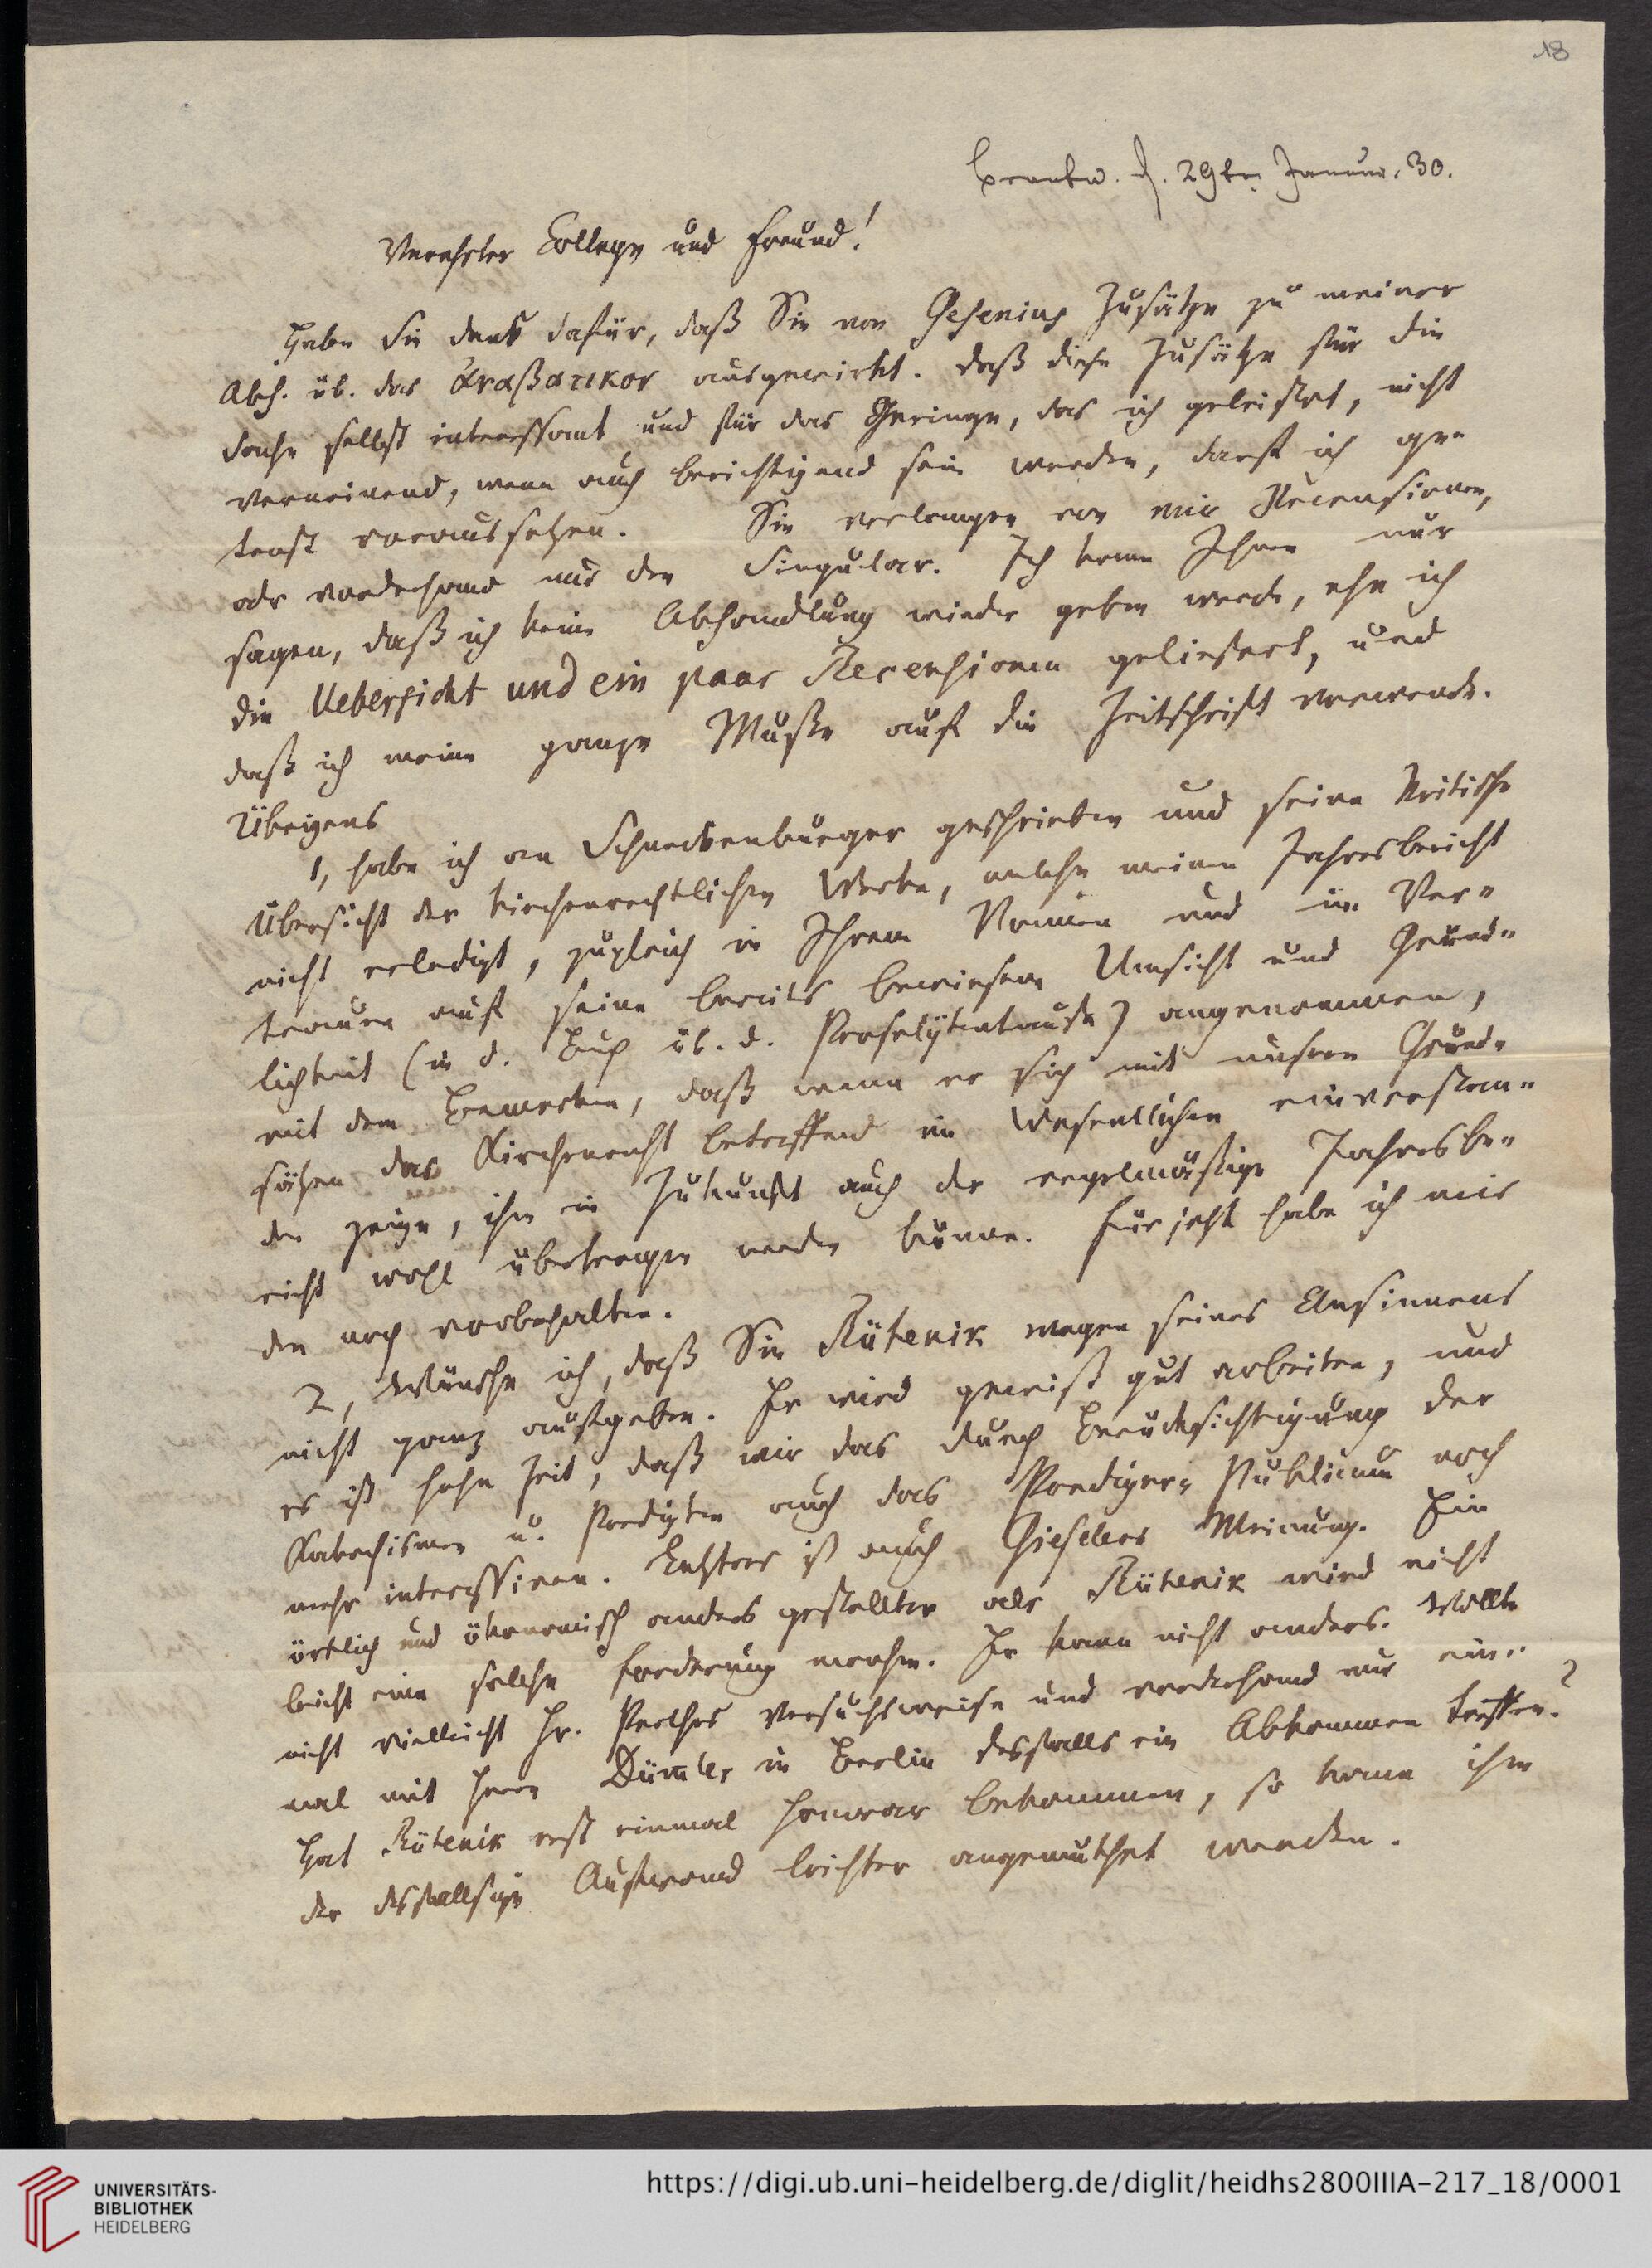 18
d. 29ten Januar. 30.
Verehrter College und Freund!
Haben Sie Dank dafür, daß Sie von Gesenius Zusätze zu meiner
Abh. üb. das αναβατικον ausgewirkt. Daß diese Zusätze für die
Sache selbst interessant und für das Geringe, das ich geleistet, nicht
verneinend, wenn auch berichtigend sein werden, darf ich ge-
trost voraussetzen. Sie verlangen von mir Recensionen,
oder vorderhand nur den Singular. Ich kann Ihnen nur
sagen, daß ich keine Abhandlung wieder geben werde, ehe ich
die Uebersicht und ein paar Recensionen geliefert, und
daß ich meine ganze Muße auf die Zeitschrift verwende.
Übrigens
1, habe ich an Schneckenburger geschrieben und seine kritische
Übersicht der kirchenrechtlichen Werke, welche meinen Jahresbericht
nicht erledigt, zugleich in Ihrem Namen und im Ver-
trauen auf seine bereits bewiesene Umsicht und Gründ-
lichkeit (in d. Buch üb. d. Proselytentaufe) angenommen,
mit dem Bemerken, daß wenn er sich mit unsern Grund-
sätzen das Kirchenrecht betreffend im Wesentlichen einverstan-
den zeige, ihm in Zukunft auch der regelmäßige Jahresbe-
richt wohl übertragen werden könne. Für jetzt habe ich mir
den noch vorbehalten.
2, Wünsche ich, daß Sie Rütenik wegen seines Ansinnens
nicht ganz aufgeben. Er wird gewiß gut arbeiten, und
es ist hohe Zeit, daß wir das durch Berücksichtigung der
Katechismen u. Predigten auch das Prediger-Publicum noch
mehr interessiren. Letzteres ist auch Gieselers Meinung. Ein
örtlich und ökonomisch anders gestellter als Rütenik wird nicht
leicht eine solche Forderung machen. Er kann nicht anders. Wollte
nicht vielleicht Hr. Perthes versuchsweise und vorderhand nur ein-
mal mit Herrn Dümler in Berlin desfalls ein Abkommen treffen?
Hat Rütenik erst einmal Honorar bekommen, so kann ihm
der desfallsige Aufwand leichter angemuthet werden.
UNIVERSITÄTS-
BIBLIOTHEK
HEIDELBERG
https://digi.ub.uni-heidelberg.de/diglit/heidhs2800IIIA-217_18/0001